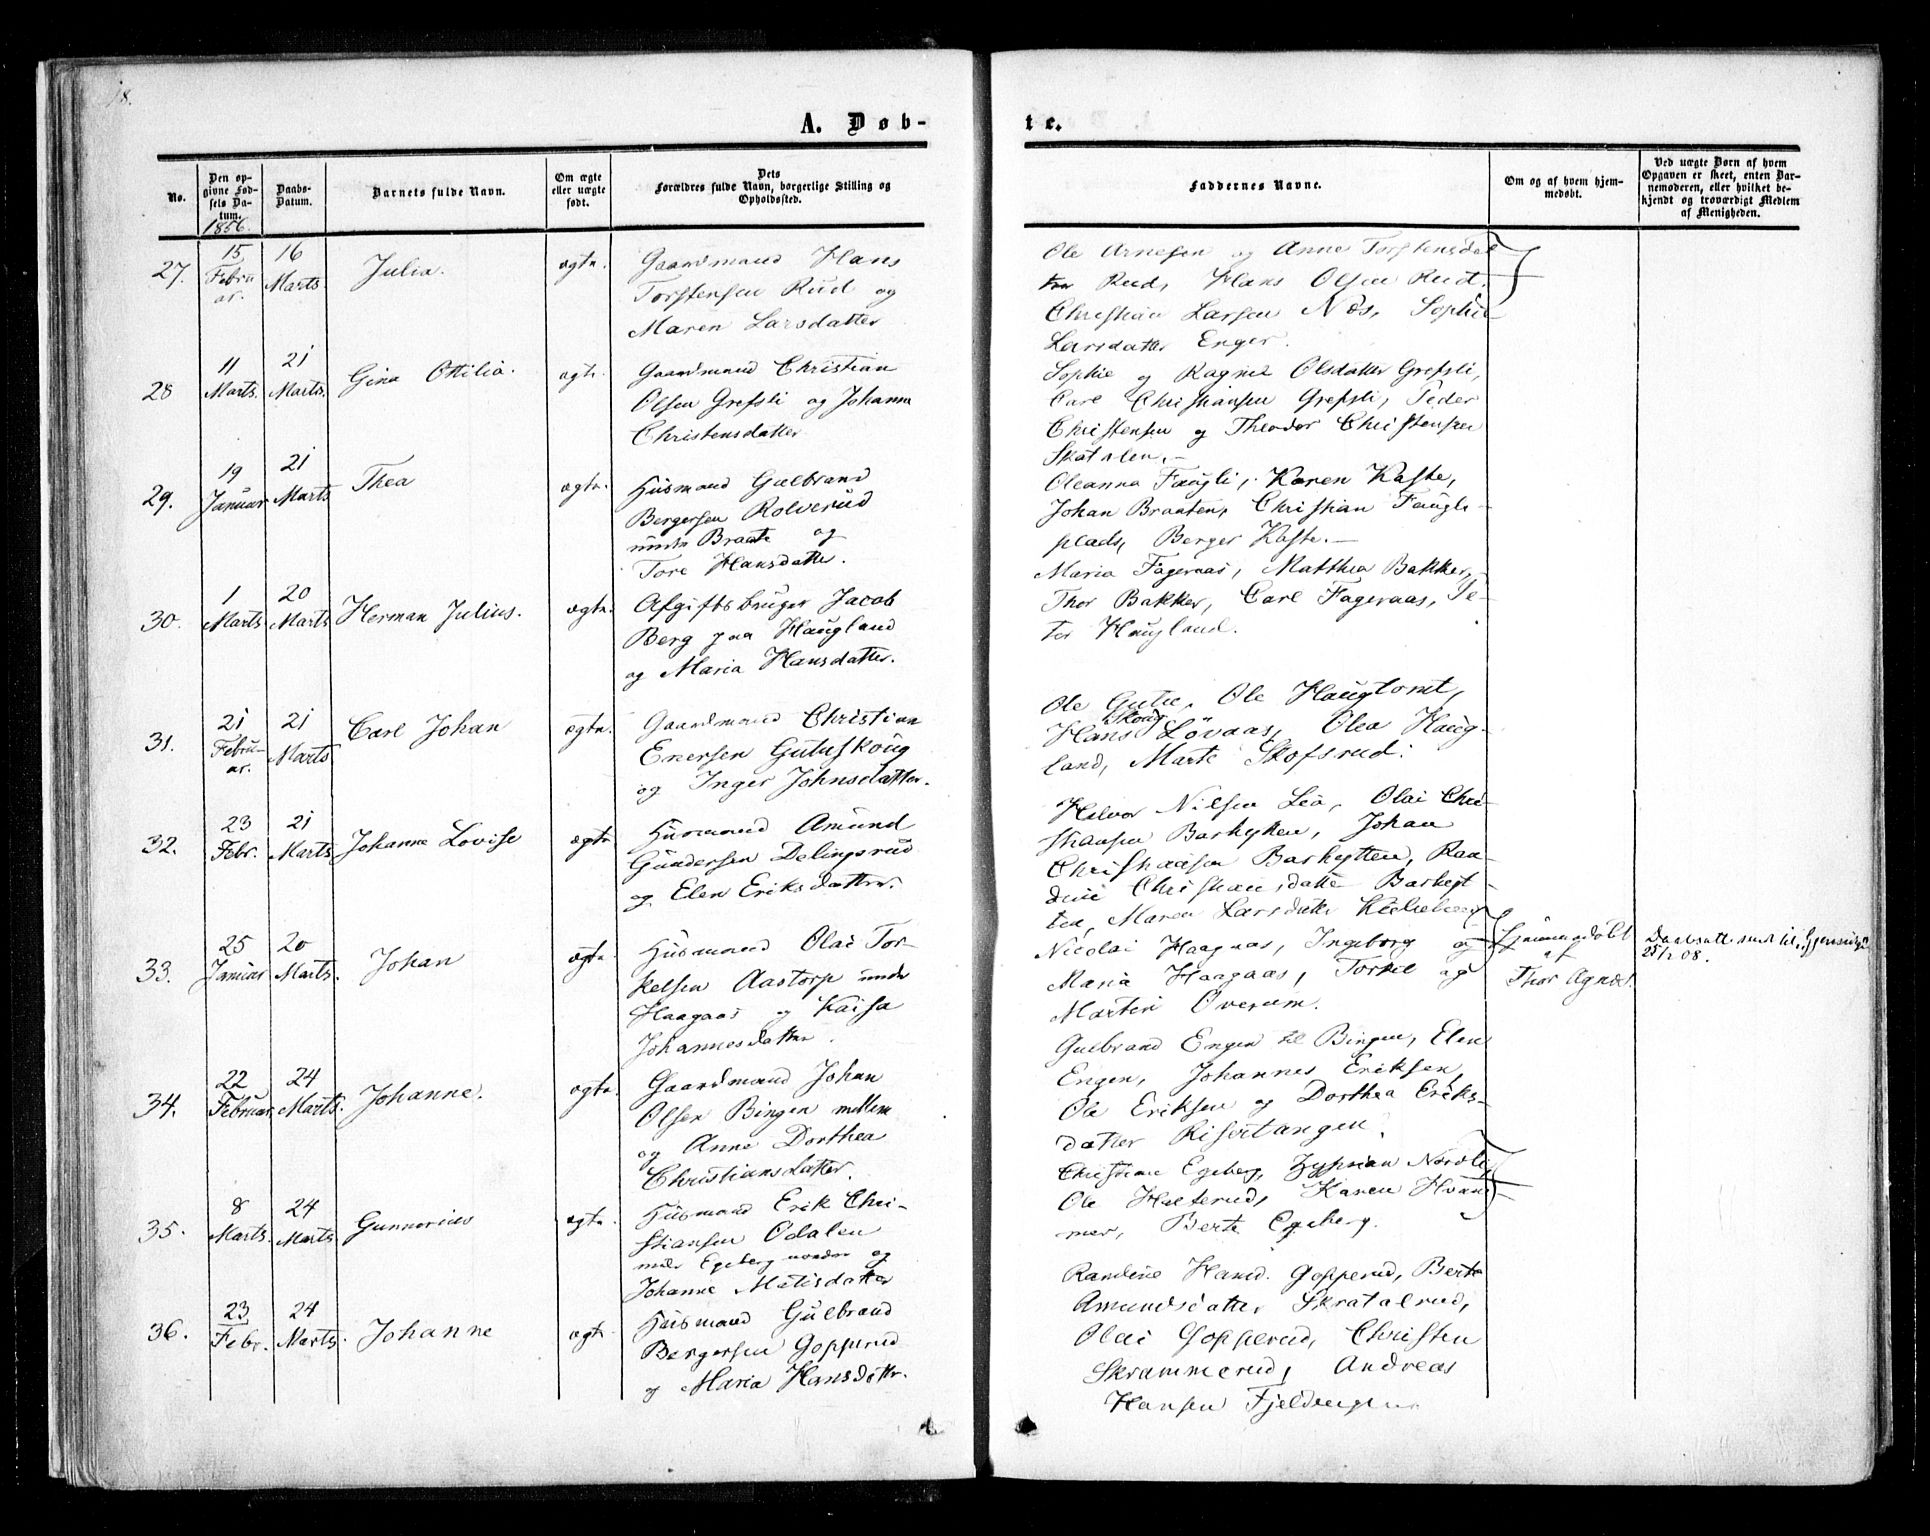 18.
A. Døb-
te.
No.
Den op-
givne Fød-
sels Da-
tum.
1856.
Daabs-
Datum.
Barnets fulde Navn.
Om ægte
eller uægte
født.
Dets
Forældres fulde Navn, borgerlige Stilling og
Opholdssted.
Faddernes Navne.
Om og af hvem hjem-
medøbt.
Ved uægte Børn af hvem
Opgaven er skeet, enten Bar-
nemoderen, eller hvilket be-
kjendt og troværdigt Medlem
af Menigheden.
27.
15
Febru
ar.
16
Marts.
Julia.
ægte.
Gaardmand Hans
Torstensen Rud og
Maren Larsdatter
Ole Arnesen og Anne Torstensdat
ter Rud, Hans Olsen Rud.
Christian Larsen Næs, Sophie
Larsdatter Enger.
28
11
Marts.
21
Marts.
Gina Ottilia.
ægte.
Gaardmand Christian
Olsen Grefsli og Johanne
Christensdatter
Sophie og Ragnil Olsdatter Grefsli,
Carl Christiansen Grefsli, Peder
Christensen og Theodor Christensen
Skatalen.
29.
19
Januar
21
Marts
Thea
ægte.
Husmand Gulbrand
Bergersen Rolverud
under Braate og
Tore Hansdatter.
Oleanna Faugli, Karen Kaste,
Johan Braaten, Christian Faugli-
plads, Berger Kaste.
30.
1
Marts
20
Marts
Herman Julius.
ægte.
Afgiftsbruger Jacob
Berg paa Haugland
og Maria Hansdatter.
Maria Fageraas, Matthea Bakker,
Thor Bakker, Carl Fageraas, Pe-
ter Haugland.
31.
21
Febru-
ar.
21
Marts
Carl Johan
ægte.
Gaardmand Christian
Enersen Guluskoug
og Inger Johnsdatter.
Ole Gulu, Ole Haugtomt,
Skoug
Hans Løvaas, Olea Haug-
land, Marte Skofsrud.
32.
23
Febr.
21
Marts
Johanne Lovise
ægte
Husmand Amund
Gundersen Delingsrud
og Elen Eriksdatter.
Halvor Nilsen Lia, Olai Chri-
stiansen Barhytten, Johan
Christiansen Barhytten, Ran-
dine Christiansdatte Barhyt
ten, Maren Larsdatte
33.
25
Januar
20
Marts.
Johan
ægte.
Husmand Olai Tor-
kelsen Aastorp under
Haagaas og Kaisa
Johannesdatter.
Nicolai Haagaas, Ingeborg og
Maria Haagaas, Torkel og
Martin Overum.
Hjemmedøbt
af
Thor Agnæs.
Daabsatt. sendt til
25/2 08.
34.
22
Februar.
24
Marts.
Johanne.
ægte.
Gaardmand Johan
Olsen Bingen mellem
og Anne Dorthea
Christiansdatter.
Gulbrand Engen til Bingen, Elen
Engen, Johannes Eriksen,
Ole Eriksen og Dorthea Eriks-
datter Risortangen.
35.
8
Marts.
24
Marts.
Gunnerius
ægte.
Husmand Erik Chri-
stiansen Odalen
under Egeberg nordre og
Johanne Matisdatter
Christiane Egeberg, Zyprian Nordli,
Ole Hulterud, Karen Ham-
mer, Berte Egeberg.
36.
23
Febr.
24
Marts.
Johanne
ægte
Husmand Gulbrand
Bergersen Gopperud
og Maria Hansdatter.
Randine Hansd. Gopperud, Berte
Amundsdatter Skratalrud,
Olai Gopperud, Christen
Skrammerud, Andreas
Hansen